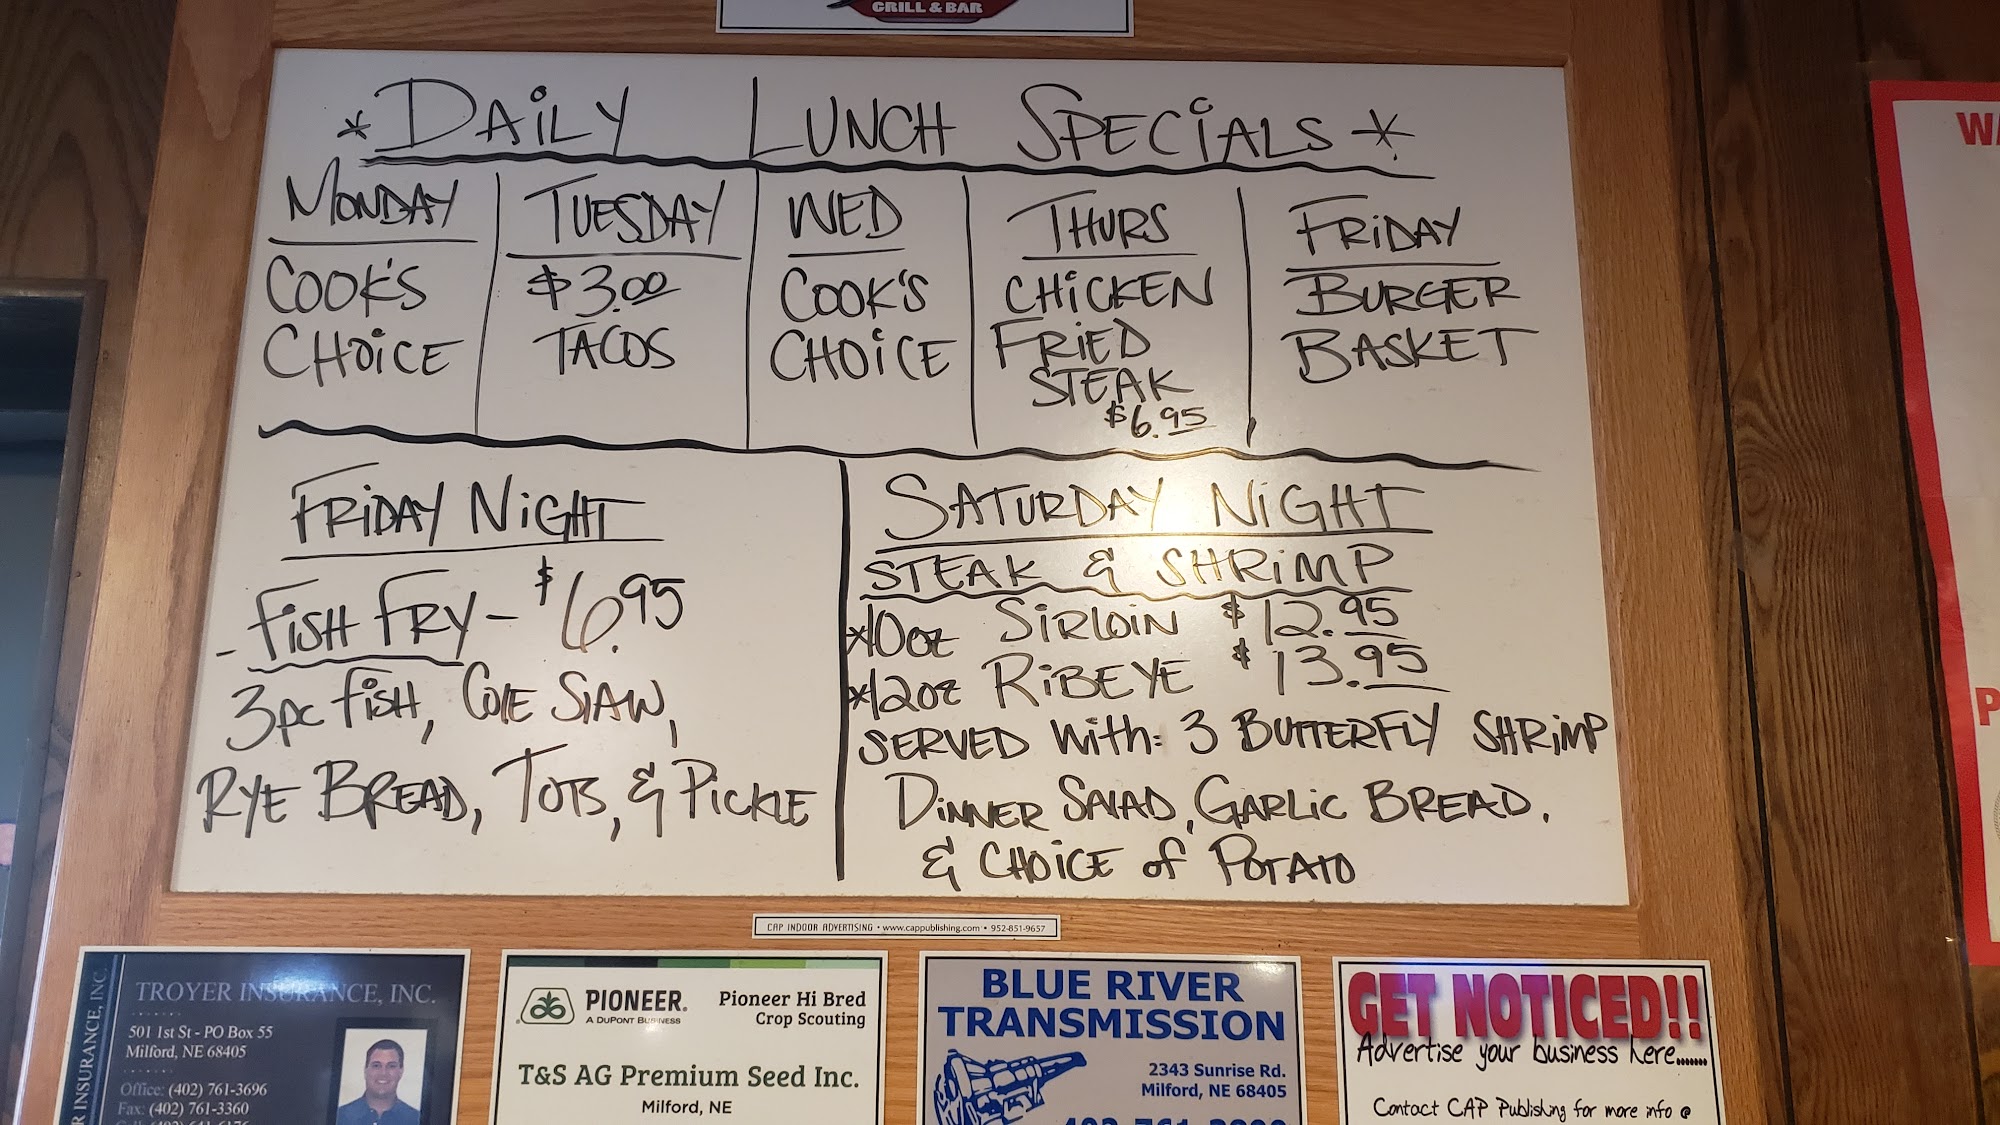 GRILL & BAR
*DAILY LUNCH SPECIALS*
MONDAY
COOK'S
CHOICE
TUESDAY
$3.00
TACOS
WED
COOK'S
CHOICE
THURS
CHICKEN
FRIED
STEAK
$6.95
FRIDAY
BURGER
BASKET
FRIDAY NIGHT
- FISH FRY - $6.95
3pc FISH, COLE SLAW,
RYE BREAD, TOTS, & PICKLE
SATURDAY NIGHT
STEAK & SHRIMP
*10oz SIRLOIN $12.95
*12oz RIBEYE $13.95
SERVED with: 3 BUTTERFLY SHRIMP
DINNER SALAD, GARLIC BREAD,
& CHOICE of POTATO
CAP INDOOR ADVERTISING • www.cappublishing.com • 952-851-9657
INSURANCE, INC.
TROYER INSURANCE, INC.
501 1st St - PO Box 55
Milford, NE 68405
Office: (402) 761-3696
Fax: (402) 761-3360
PIONEER.
A DUPONT BUSINESS
Pioneer Hi Bred
Crop Scouting
T&S AG Premium Seed Inc.
Milford, NE
BLUE RIVER
TRANSMISSION
2343 Sunrise Rd.
Milford, NE 68405
GET NOTICED!!
Advertise your business here.......
Contact CAP Publishing for more info @